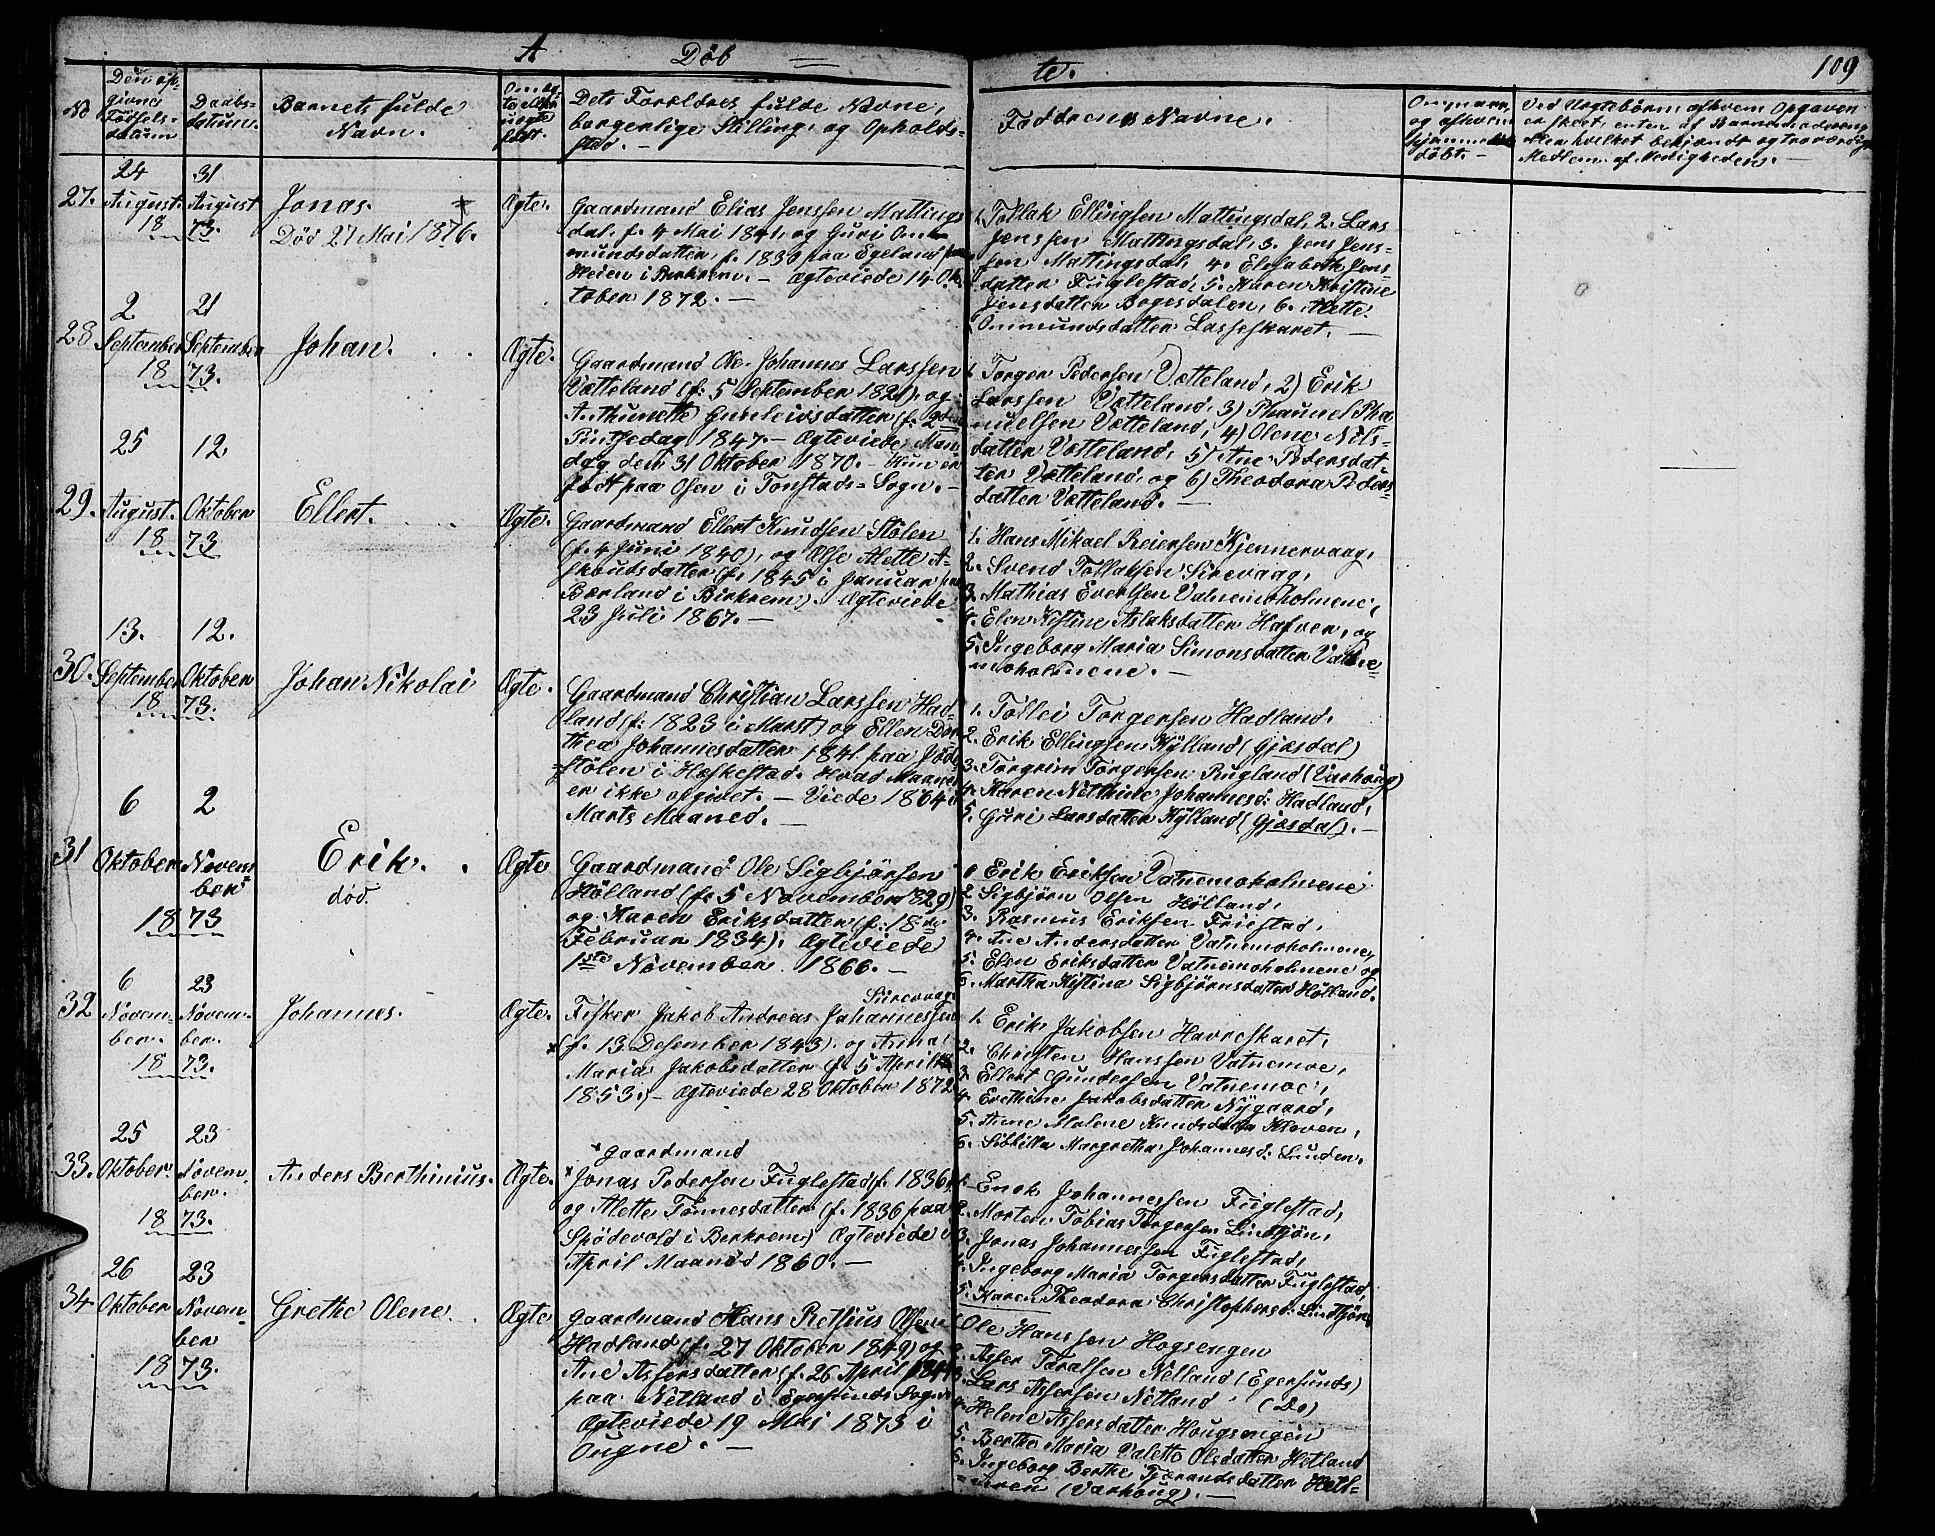 A Döb te. 109
No
Den op-
givne
Födsels-
datum
Daabs-
datum.
Barnets fulde
Navn.
Om æg-
te eller
uægte
födt.
Dets Forældres fulde Navne,
borgerlige Stilling, og Opholds-
sted. —
Faddrenes Navne.
og afhvem
hjemme
döbt. —
Ved Uægtebörn, afhvem Opgaven
er skeet, enten af Barnemoderen
eller hvilket bekjendt og troværdigt
Medlem af Menigheden. —
24 31
27. August. August
18 73.
Jonas.
Död 27 Mai 1876.
Ægte.
Gaardmand Elias Jenssen Mattings
dal, f. 4 Mai 1841, og Guri Om-
mundsdatter f. 1830 paa Egeland paa
Heien i Birkrem. — Ægteviede 14 Ok
tober 1872. —
1. Tollak Ellingsen Mattingsdal, 2. Lars
Jenssen Mattingsdal, 3. Jens Jens-
sen Mattingsdal, 4. Elisabeth Jens-
datter Fuglestad, 5. Karen Kristine
Jensdatter Bogesdalen, 6. Mette
Ommundsdatter Lasseskaret. —
2 21
28 September September
18 73.
Johan.
Ægte.
Gaardmand Ole Johannes Larssen
Vætteland (f. 5 September 1821), og
Anthunette Gunleivsdatter (f. 2den
Pintsedag 1847. — Ægteviede Man
dag den 31 Oktober 1870. — Hun er
födt paa Osen i Tonstads-Sogn. —
1. Torger Pedersen Vætteland, 2) Erik
Larssen Vætteland, 3) Phanuel Pha
nuelsen Vætteland, 4) Olene Nils-
datter Vætteland, 5) Ane Pedersdat-
ter Vætteland, og 6) Theodora Peders
datter Vætteland. —
25 12.
29. August. Oktober
18 73
Ellert.
Ægte.
Gaardmand Ellert Knudsen Stölen
(f. 4 Juni 1840), og Else Mette A-
skoudsdatter (f. 1845 i Januar paa
Bærland i Birkrem). Ægteviede
23 Juli 1867. —
1. Hans Mikael Reiersen Kjennervaag,
2. Svend Tollaksen Sirevaag,
3. Mathias Evertsen Vatnemoholmene,
4. Elen Kistine Aslaksdatter Hafven, og
5. Ingeborg Maria Simonsdatter Vatne
moholmene. —
13. 12.
30. September Oktober
18 73.
Johan Nikolai
Ægte.
Gaardmand Christian Larssen Had-
land (f. 1823 i Marst) og Ellen Dor
thea Johannesdatter 1841 paa Jöde
stölen i Heskestad. Hvad Maaned
er ikke opgivet. — Viede 1864 i
Marts Maaned. —
1. Tollei Torgersen Hadland,
2. Erik Ellingsen Kylland (Gjæsdal)
3. Torgrim Torgersen Rugland (Varhoug)
4. Karen Nethine Johannesd: Hadland,
5. Guri Larsdatter Kylland (Gjæsdal). —
6 2
31 Oktober Novem
ber
18 73
Erik.
död.
Ægte
Gaardmand Ole Sigbjörsen
Hölland (f. 5 November 1829)
og Karen Eriksdatter (f. 18de
Februar 1834). Ægteviede
1ste November 1866. —
1 Erik Eriksen Vatnemoholmene
2. Sigbjörn Olsen Hölland,
3. Rasmus Eriksen Friestad,
4. Ane Andersdatter Vatnemoholmene,
5. Elen Eriksdatter Vatnemoholmene og
6. Martha Kistina Sigbjörnsdatter Hölland.
6 23
32 Novem- Novem-
ber. ber.
18 73.
Johannes.
Ægte.
Siirevaag
Fisker Jakob Andreas Johannessen
(f. 13 Desember 1843). og Anna
Maria Jakobsdatter (f. 5 April
1853.) — Ægteviede 28 Oktober 1872
1. Erik Jakobsen Havreskaret,
2. Christen Hanssen Vatnemoe,
3. Ellert Gundersen Vatnemoe,
4. Erethine Jakobsdatter Nygaard,
5. Anne Malene Knudsdatter Kleven,
6. Sibbilla Margretha Johannesd: Lunden.
25 23
33. Oktober Novem-
ber.
18 73.
Anders Berthinius.
Ægte.
× gaardmand
× Jonas Pedersen Fuglestad (f. 1836)
og Alette Tönnesdatter (f. 1836 paa
Spödevold i Berkrem) Ægteviede i
April Maaned 1860. —
1. Enok Johannessen Fuglestad,
2. Morten Tobias Torgersen Lindtjön,
3. Jonas Johannessen Fuglestad,
4. Ingeborg Maria Torgersdatter Fuglestad,
5. Karen Theodora Christophersd: Lindtjön
26 23
34 Oktober Novem-
ber
18 73.
Grethe Olene.
Ægte
Gaardmand Hans Retsius Olsen
Hadland (f. 27 Oktober 1849) og
Ane Assersdatter (f. 26 April
paa Netland i Egersunds Sogn
Ægteviede 19 Mai 1873 i
Ougne. —
Ole Hanssen Hogsengen
2. Asser Taralssen Nelland (Egersunds)
3. Lars Assersen Netland (Do)
4. Helene Assersdatter Hougsengen
5. Berthe Maria Valette Olsdatter Hetland
6. Ingeborg Berthe Tjærandsdatter Hetl-
(Varhoug). —